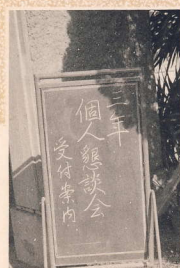 三年
個人懇談会
受付案内